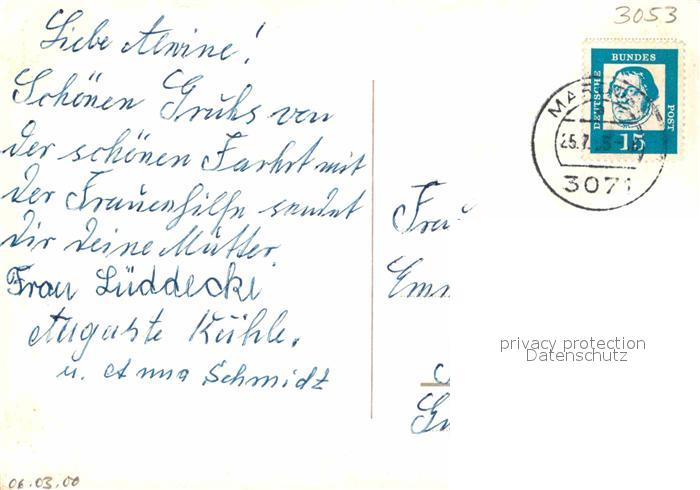 3053
Liebe Alwine!
Schönen Gruhs von
der schönen Farhrt mit
der Frauenhilfe sendet
dir deine Mütter
Frau Lüddecki
Auguste Kühle.
u. Anna Schmidt
DEUTSCHE BUNDES POST
15
25.7.
3071
Frau
Emm
privacy protection
Datenschutz
06.03.00